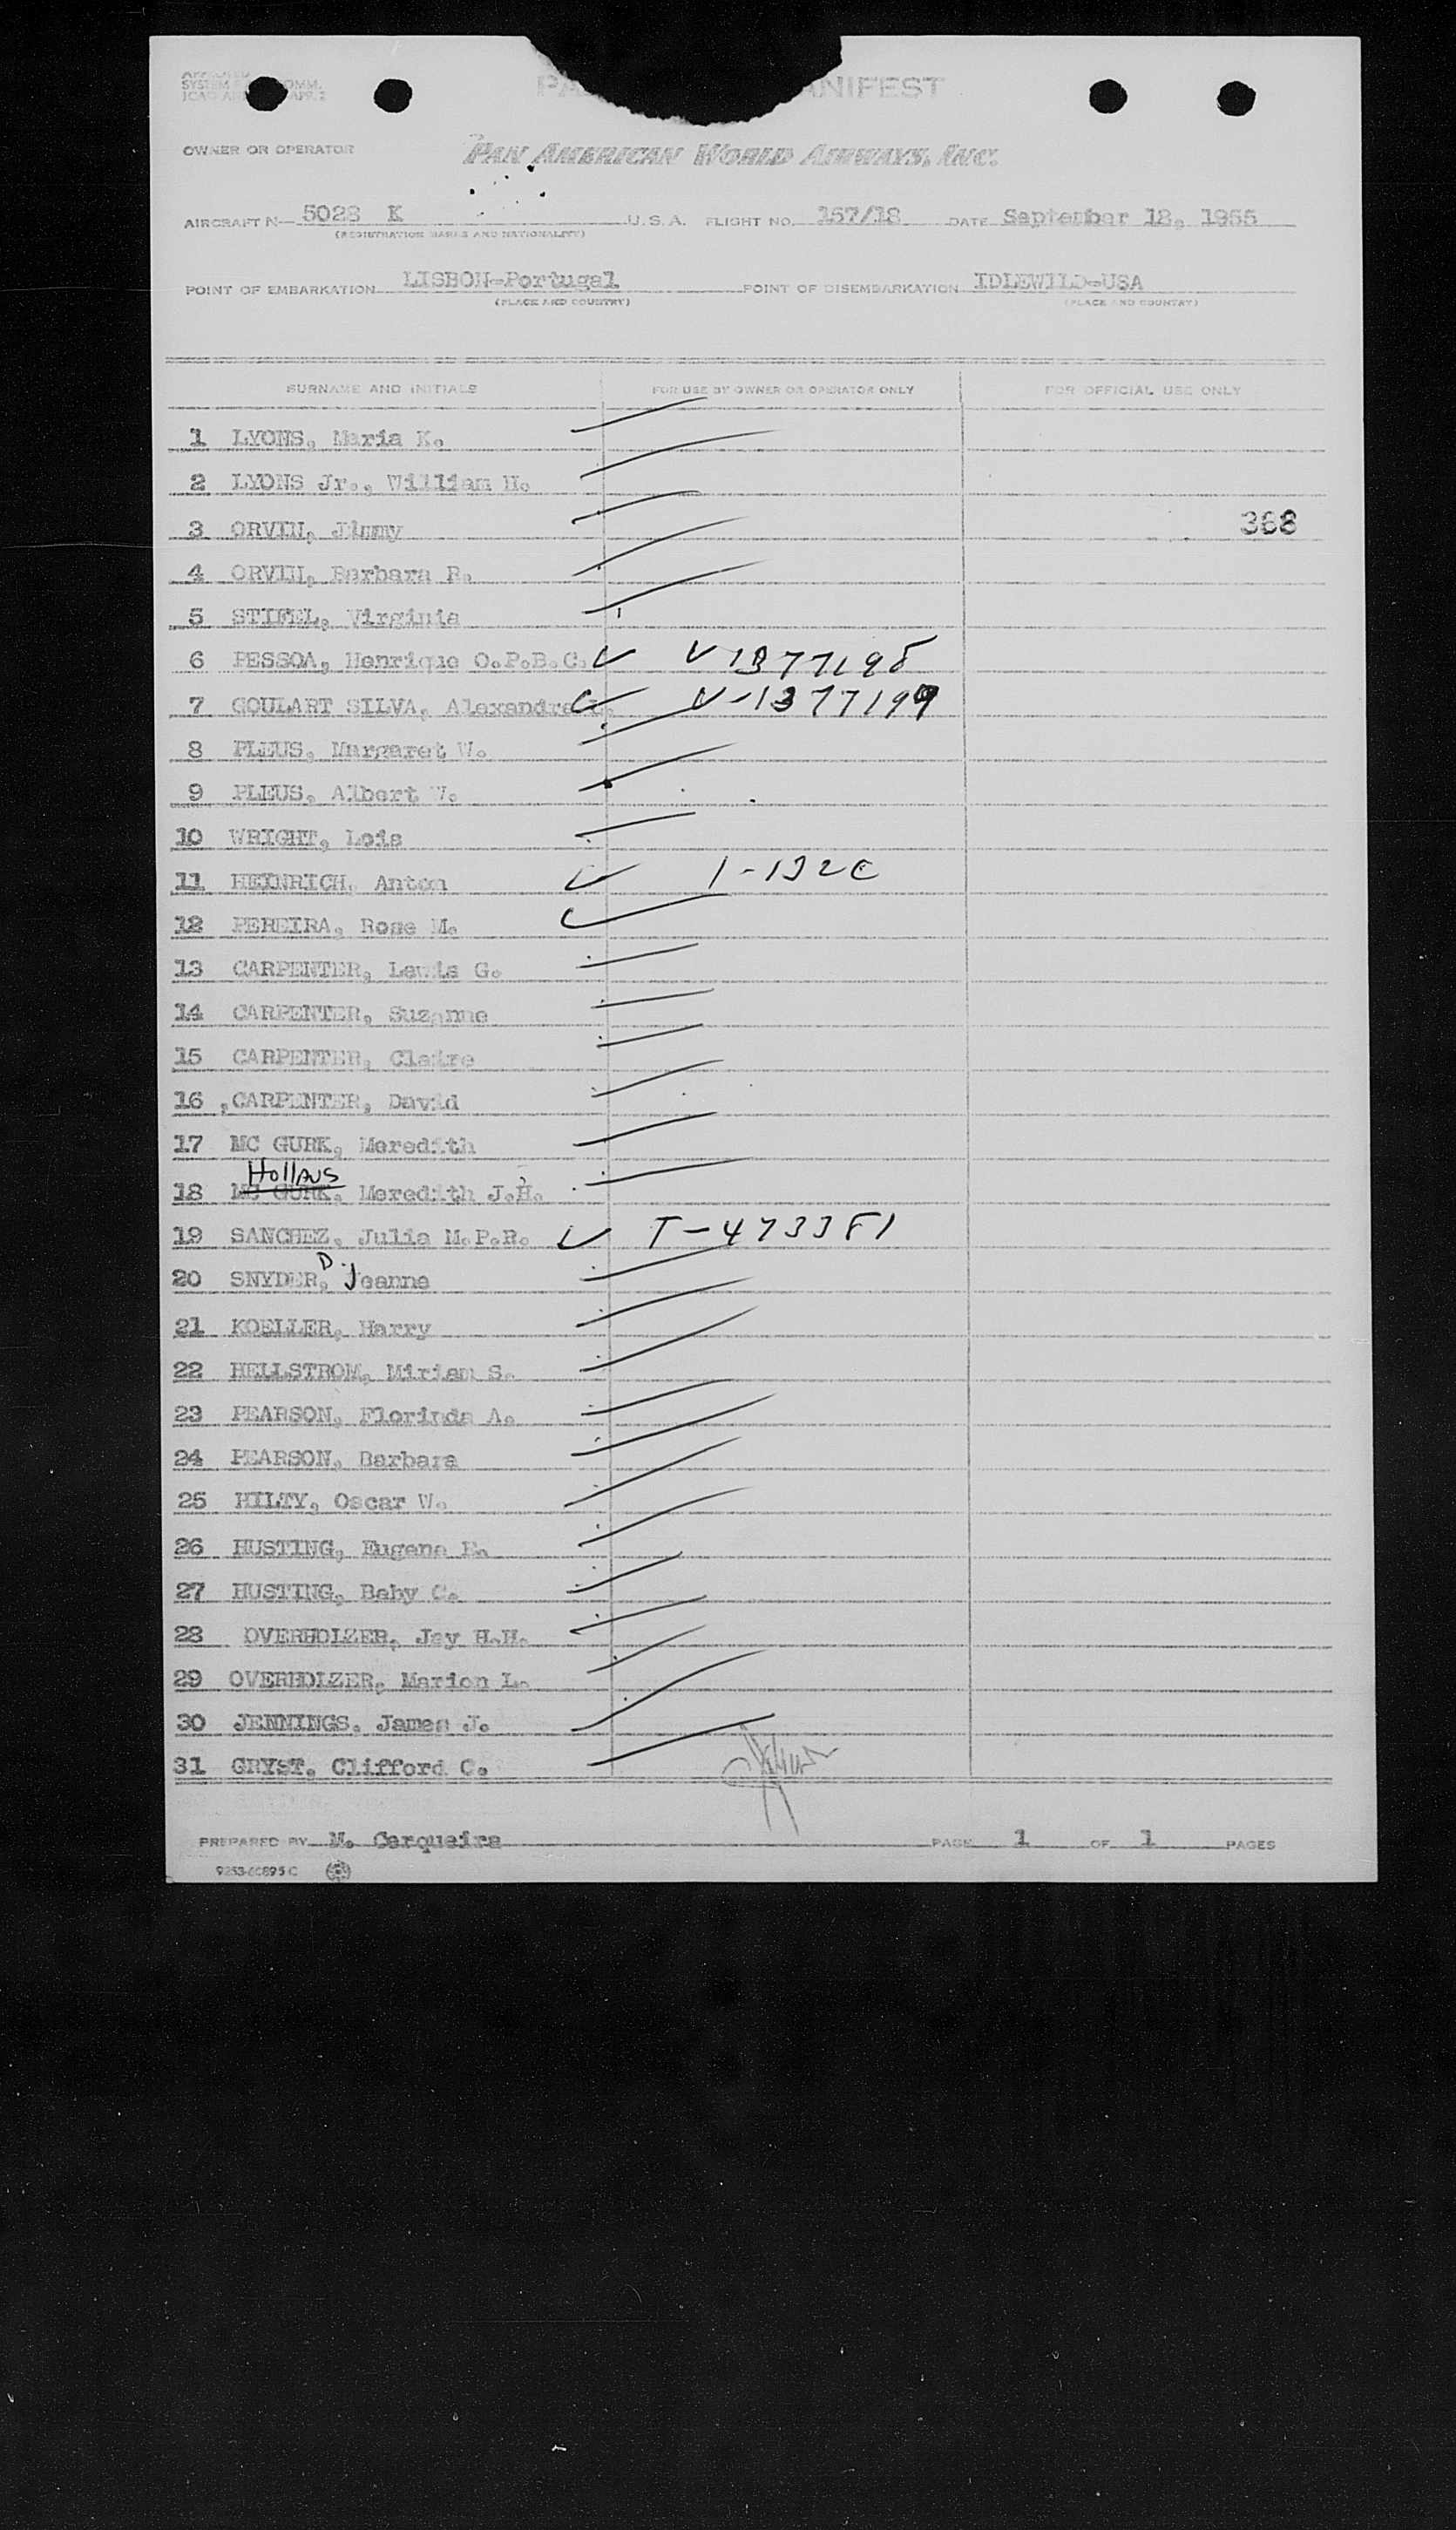 MANIFEST
OWNER OR OPERATOR PAN AMERICAN WORLD AIRWAYS, INC.
AIRCRAFT N 5028 K U.S.A. FLIGHT NO. 157/18 DATE September 18, 1955
(REGISTRATION MARKS AND NATIONALITY)
POINT OF EMBARKATION LISBON-Portugal POINT OF DISEMBARKATION IDLEWILD-USA
(PLACE AND COUNTRY) (PLACE AND COUNTRY)
SURNAME AND INITIALS FOR USE BY OWNER OR OPERATOR ONLY FOR OFFICIAL USE ONLY
1 LYONS, Maria K.
2 LYONS Jr., William H.
3 ORVIN, Jimmy 368
4 ORVIN, Barbara B.
5 STIFEL, Virginia
6 PESSOA, Henrique O.P.B.C. V1377198
7 GOULART SILVA, Alexandre V-1377199
8 PLEUS, Margaret W.
9 PLEUS, Albert W.
10 WRIGHT, Lois
11 HEINRICH, Anton 1-132C
12 PEREIRA, Rose M.
13 CARPENTER, Lewis G.
14 CARPENTER, Suzanne
15 CARPENTER, Claire
16 CARPENTER, David
17 MC GURK, Meredith
Hollaus
18 MC GURK, Meredith J.H.
19 SANCHEZ, Julia M.P.R. T-4733F1
20 SNYDER, D. Jeanne
21 KOELLER, Harry
22 HELLSTROM, Miriam S.
23 PEARSON, Florinda A.
24 PEARSON, Barbara
25 HILTY, Oscar W.
26 HUSTING, Eugene E.
27 HUSTING, Baby C.
28 OVERHOLZER, Jay H.H.
29 OVERHOLZER, Marion L.
30 JENNINGS, James J.
31 GRYST, Clifford C.
PREPARED BY M. Cerqueira PAGE 1 OF 1 PAGES
9253-60895C